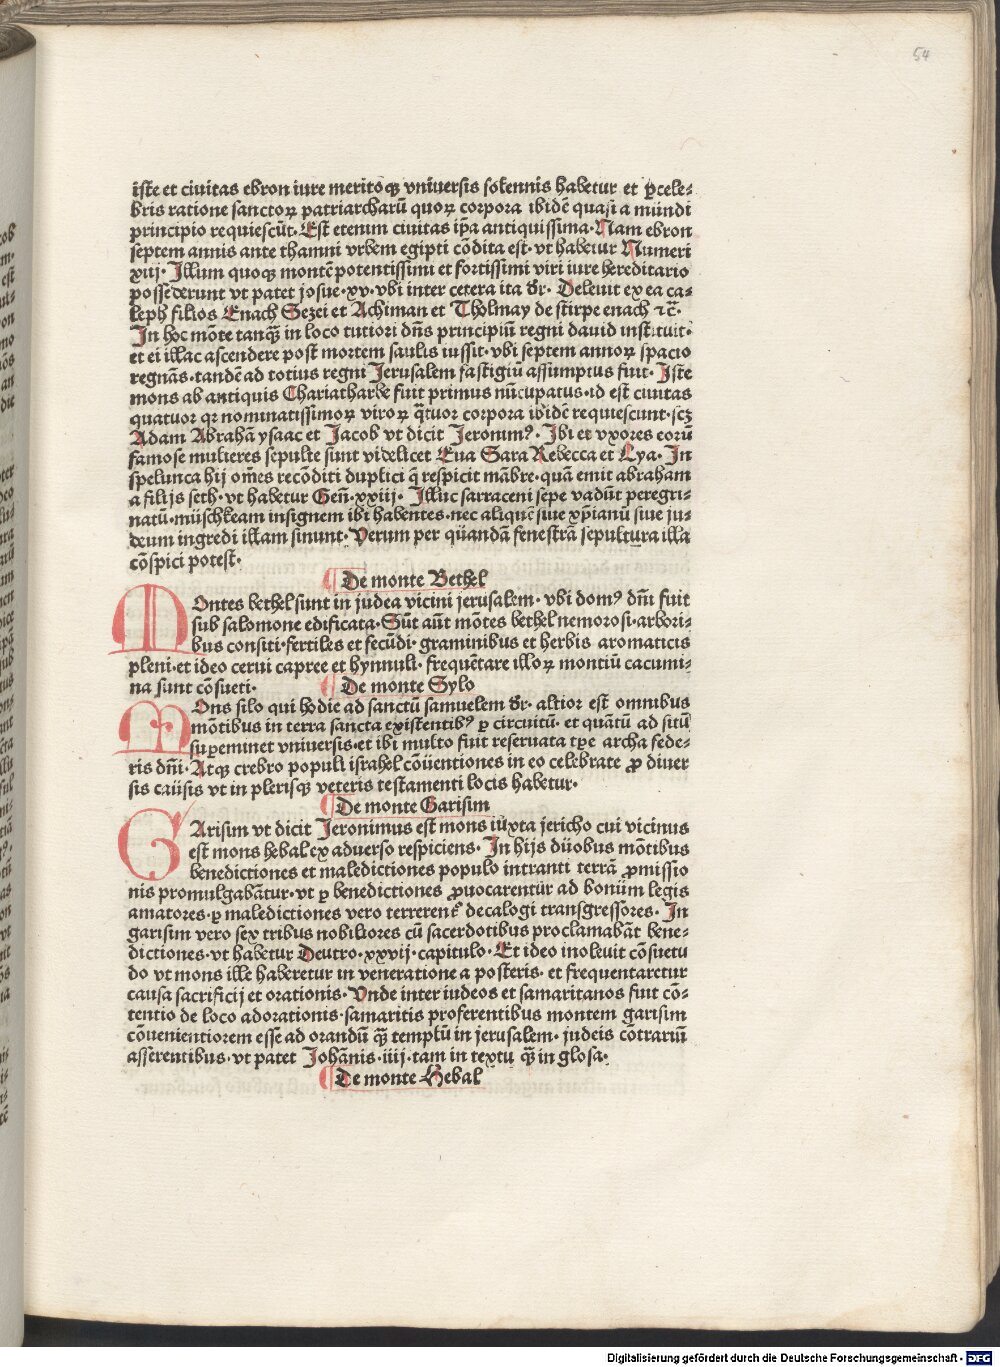 54
iste et ciuitas ebron iure merito qꝫ vniuersis solennis habetur et p̲cele-
bris ratione sanctoꝝ patriarcharū quoꝝ corpora ibidē quasi a mundi
principio requiescūt. Est etenim ciuitas ip̄a antiquissima. Nam ebron
septem annis ante thamni vrbem egipti cōdita est. vt habetur Numeri
xiij. Illum quoqꝫ montē potentissimi et fortissimi viri iure hereditario
possederunt vt patet josue. xv. vbi inter cetera ita dr̄. Deleuit ex ea ca-
leph filios Enach Sezei et Achiman et Tholmay de stirpe enach ⁊c̄.
In hoc mōte tanqꝫ̄ in loco tutiori dn̄s principiū regni dauid instituit.
et ei illac ascendere post mortem saulis iussit. vbi septem annoꝝ spacio
regnās. tandē ad totius regni Jerusalem fastigiū assumptus fuit. Iste
mons ab antiquis Chariatharbe fuit primus nūcupatus. id est ciuitas
quatuor qr nominatissimoꝝ viroꝝ q̄tuor corpora ibidē requiescunt. scꝫ
Adam Abrahā ysaac et Jacob vt dicit Jeronimꝰ. Ibi et vxores eorū
famose mulieres sepulte sunt videlicet Eua Sara Rebecca et Lya. In
spelunca hij om̄es recōditi duplici q̄ respicit mābre. quā emit abraham
a filijs seth. vt habetur Gen̄. xxiij. Illuc sarraceni sepe vadūt peregri-
natū. müschkeam insignem ibi habentes. nec aliquē siue xp̄ianū siue ju-
deum ingredi illam sinunt. Verum per quandā fenestrā sepultura illa
cōspici potest.
¶ De monte Bethel
MOntes bethel sunt in judea vicini jerusalem. vbi domꝰ dn̄i fuit
sub salomone edificata. Sūt aūt mōtes bethel nemorosi. arbori-
bus consiti. fertiles et fecūdi. graminibus et herbis aromaticis
pleni. et ideo cerui capree et hynnuli. frequētare illoꝝ montiū cacumi-
na sunt cōsueti. ¶ De monte Sylo
MOns silo qui hodie ad sanctū samuelem dr̄. altior est omnibus
mōtibus in terra sancta existentibꝰ ꝑ circuitū. et quātū ad sitū
suꝑeminet vniuersis. et ibi multo fuit reseruata tp̄e archa fede-
ris dn̄i. Atqꝫ crebro populi israhel cōuentiones in eo celebrate ꝓ diuer
sis causis vt in plerisqꝫ veteris testamenti locis habetur.
¶ De monte Garisim
GArisim vt dicit Jeronimus est mons iuxta jericho cui vicinus
est mons hebal ex aduerso respiciens. In hijs duobus mōtibus
benedictiones et maledictiones populo intranti terrā ꝓmissio
nis promulgabātur. vt ꝑ benedictiones ꝓuocarentur ad bonum legis
amatores. ꝑ maledictiones vero terrerent᷑ decalogi transgressores. In
garisim vero sex tribus nobiliores cū sacerdotibus proclamabāt bene-
dictiones. vt habetur Deutro. xxvij. capitulo. Et ideo inoleuit cōsuetu
do vt mons ille haberetur in veneratione a posteris. et frequentaretur
causa sacrificij et orationis. Unde inter iudeos et samaritanos fuit cō-
tentio de loco adorationis. samaritis proferentibus montem garisim
cōuenientiorem esse ad orandū qꝫ̄ templū in jerusalem. judeis cōtrariū
asserentibus. vt patet Johānis. iiij. tam in textu qꝫ̄ in glosa.
¶ De monte Hebal
Digitalisierung gefördert durch die Deutsche Forschungsgemeinschaft - DFG